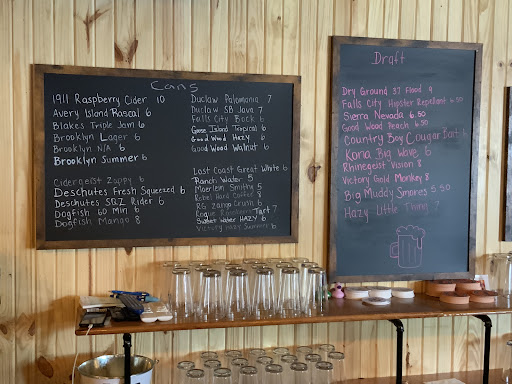 Cans
1911 Raspberry Cider 10
Avery Island Rascal 6
Blakes Triple Jam 6
Brooklyn Lager 6
Brooklyn N/A 6
Brooklyn Summer 6
Cidergeist Zappy 6
Deschutes Fresh Squeezed 6
Deschutes SQZ Rider 6
Dogfish 60 Min 6
Dogfish Mango 8
Duclaw Palomania 7
Duclaw SB Java 7
Falls City Bock 6
Goose Island Tropical 6
Good Wood Hazy 6
Good Wood Walnut 6
Lost Coast Great White 6
Ranch Water 5
Moerlein Smithy 5
Rebel Hard Coffee 8
RG Zango Crush 6
Rogue Tart 7
Sweet Water HAZY 6
Victory Hazy Summer 6
Draft
Dry Ground 37 Flood 9
Falls City Hipster Repellant 6.50
Sierra Nevada 6.50
Good Wood Peach 6.50
Country Boy Cougar Bait 6
Kona Big Wave 6
Rhinegeist Vision 8
Victory Gold Monkey 8
Big Muddy Smores 5.50
Hazy Little Thing 7